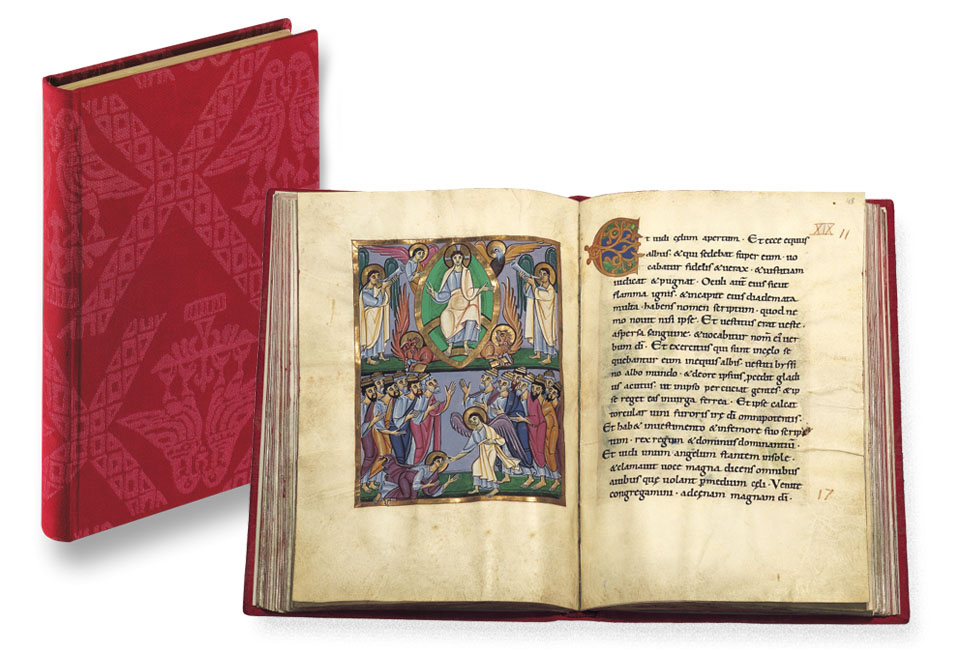 48
Et uidi cęlum apertum · Et ecce equus XIX 11
albus · & qui sedebat super eum · uo
cabatur fidelis & uerax · & iustitiam
iudicat & pugnat · Oculi autē eius sicut
flamma ignis · & incapite eius diademata
multa · habens nomen scriptum · quod ne
mo nouit nisi ipse · Et uestitus erat ueste ·
aspersa sanguine · & uocabitur nom̄ ei' uer
bum dī · Et exercitus qui sunt incęlo se
quebantur eum inequis albis · uestiti byssi
no albo mundo · & deore ipsius, pcedit gladi
us acutus · ut inipso percutiat gentes · & ip
se reget eas inuirga ferrea · Et ipse calcat
torcular uini furoris irę dī omnipotentis ·
Et hab& inuestimento & infemore suo scrip
tum · rex regum & dominus dominantiū ·
Et uidi unum angelum stantem insole ·
& clamauit uoce magna dicens omnibus
auibus quę uolant p medium cęli · Venite 17
congregamini · adcęnam magnam dī ·